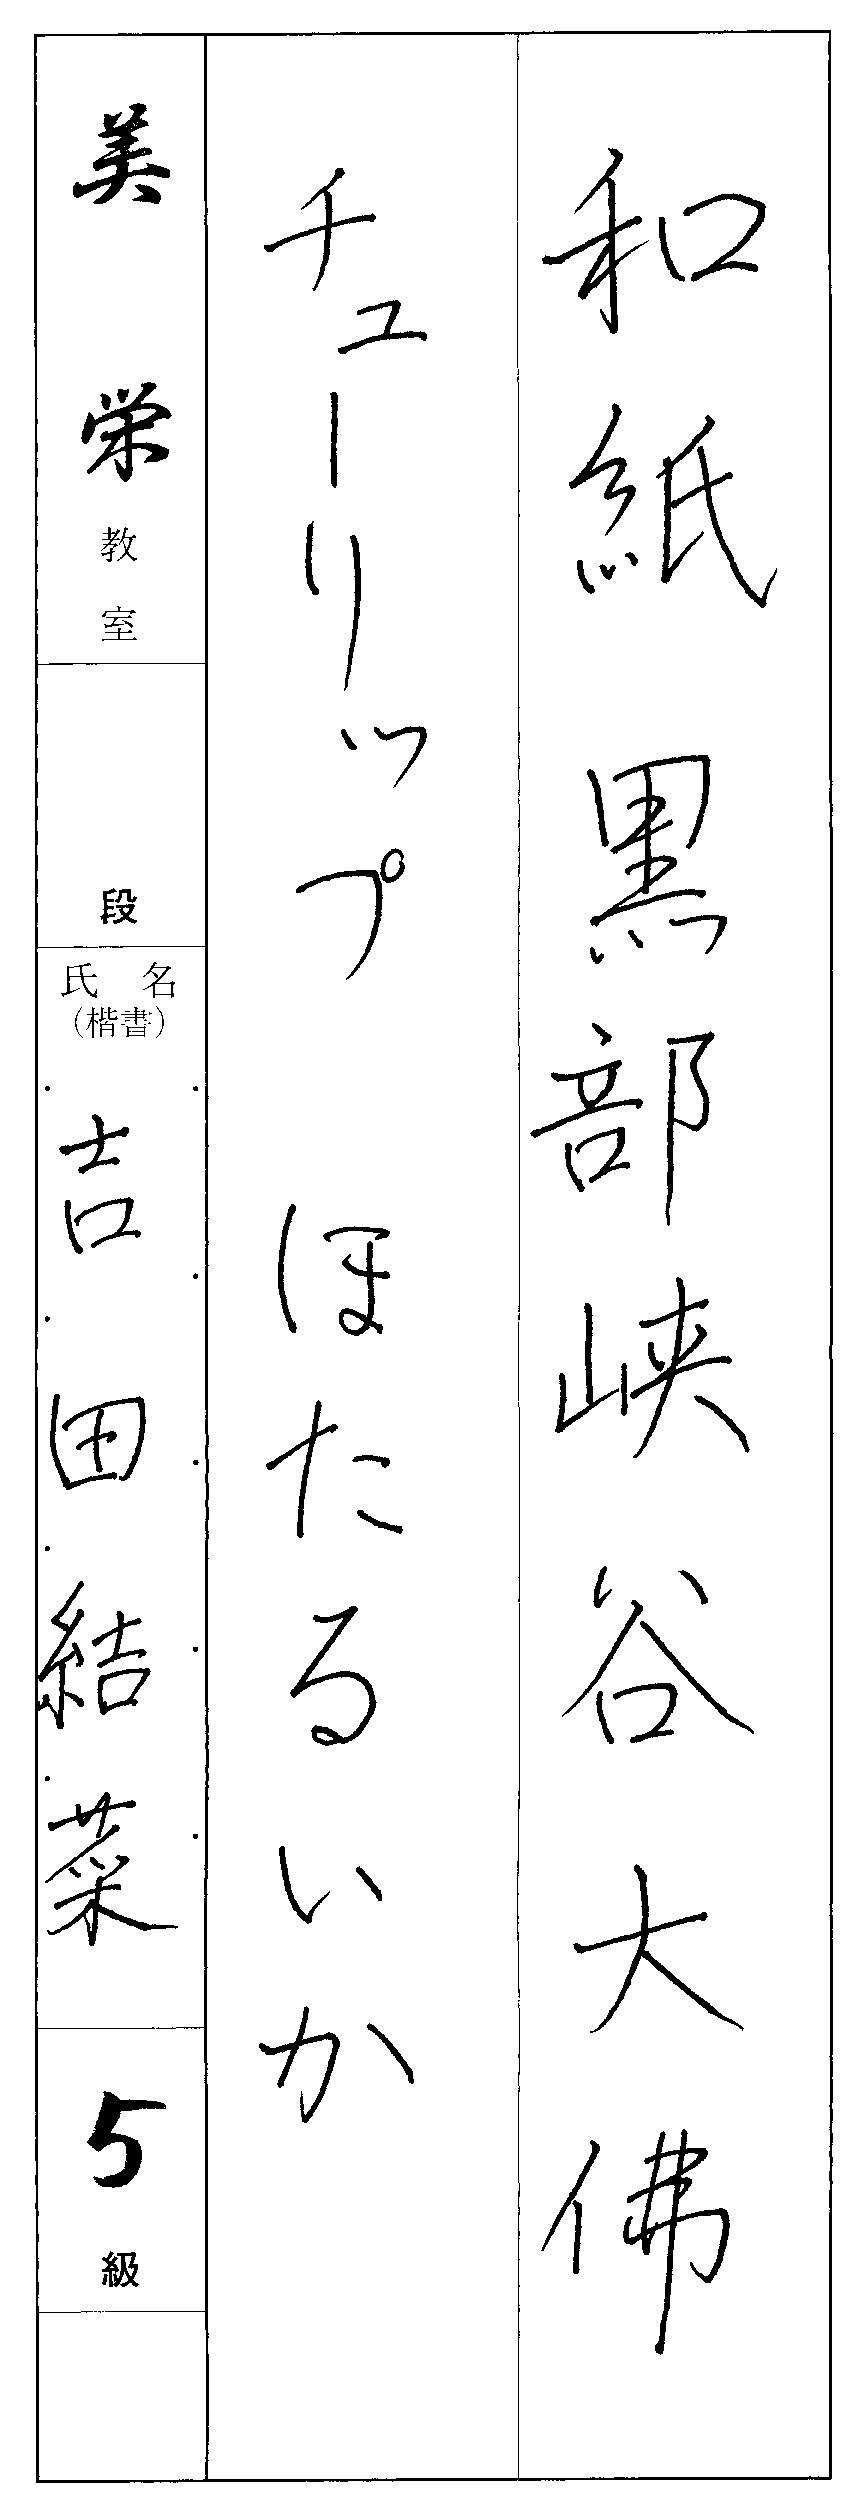 和紙 黒部峡谷大佛
チューリップ ほたるいか
美栄教室
段
氏名
(楷書)
吉田結菜
5級